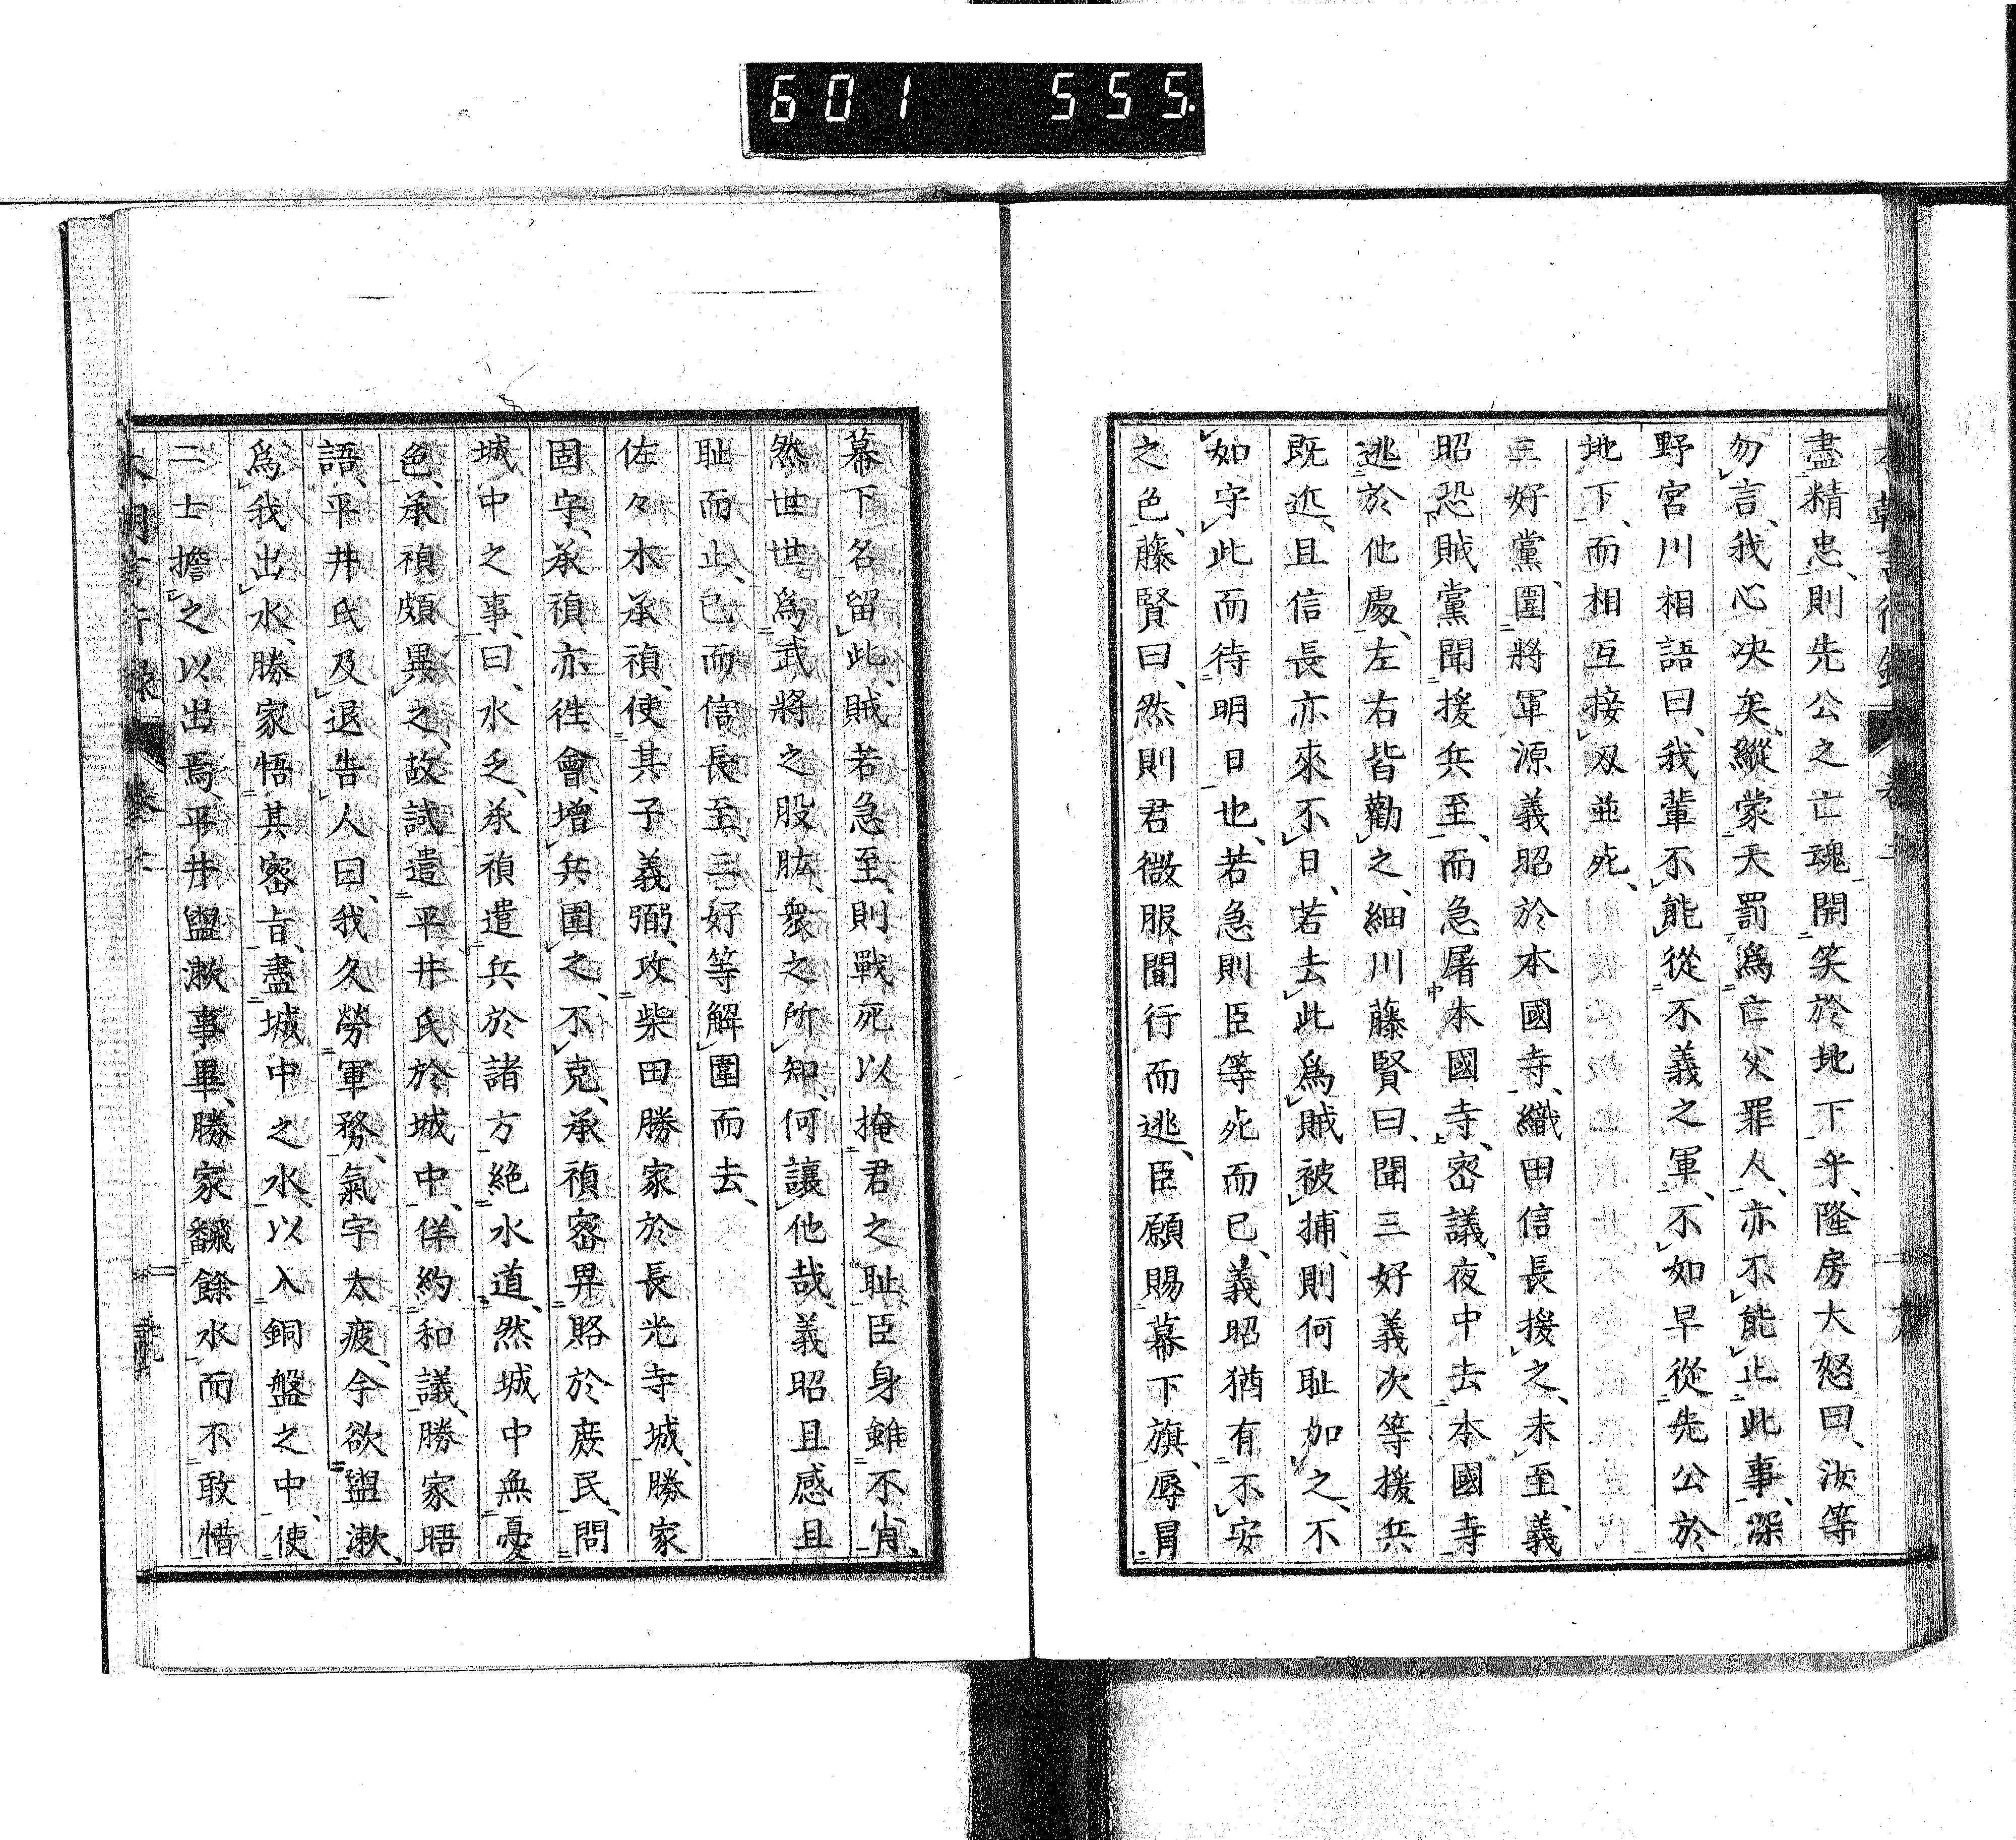 601 555.
盡精忠、則先公之亡魂開笑於地下乎、隆房大怒曰、汝等
勿言、我心决矣、縱蒙天罰爲亡父罪人、亦不能止此事、深
野宮川相語曰、我輩不能從不義之軍、不如早從先公於
地下、而相互接刄並死、
三好黨圍將軍源義昭於本國寺、織田信長援之、未至、義
昭恐賊黨聞援兵至、而急屠本國寺、密議、夜中去本國寺
逃於他處、左右皆勸之、細川藤賢曰、聞三好義次等援兵
既近、且信長亦來不日、若去此爲賊被捕、則何耻如之、不
如守此而待明日也、若急則臣等死而已、義昭猶有不安
之色、藤賢曰、然則君微服間行而逃、臣願賜幕下旗、辱冒
幕下名留此、賊若急至、則戰死以掩君之耻、臣身雖不肖、
然世世爲武將之股肱、衆之所知、何讓他哉、義昭且感且
耻而止、已而信長至、三好等解圍而去、
佐々木承禎、使其子義弼、攻柴田勝家於長光寺城、勝家
固守、承禎亦徃會、增兵圍之、不克、承禎密畀賂於庶民、問
城中之事、曰、水乏、承禎遣兵於諸方絶水道、然城中無憂
色、承禎頗異之、故試遣平井氏於城中、佯約和議、勝家晤
語、平井氏及退告人曰、我久勞軍務、氣字太疲、今欲盥漱、
爲我出水、勝家悟其密旨、盡城中之水、以入銅盤之中、使
二士擔之以出焉、平井盥漱事畢、勝家飜餘水而不敢惜